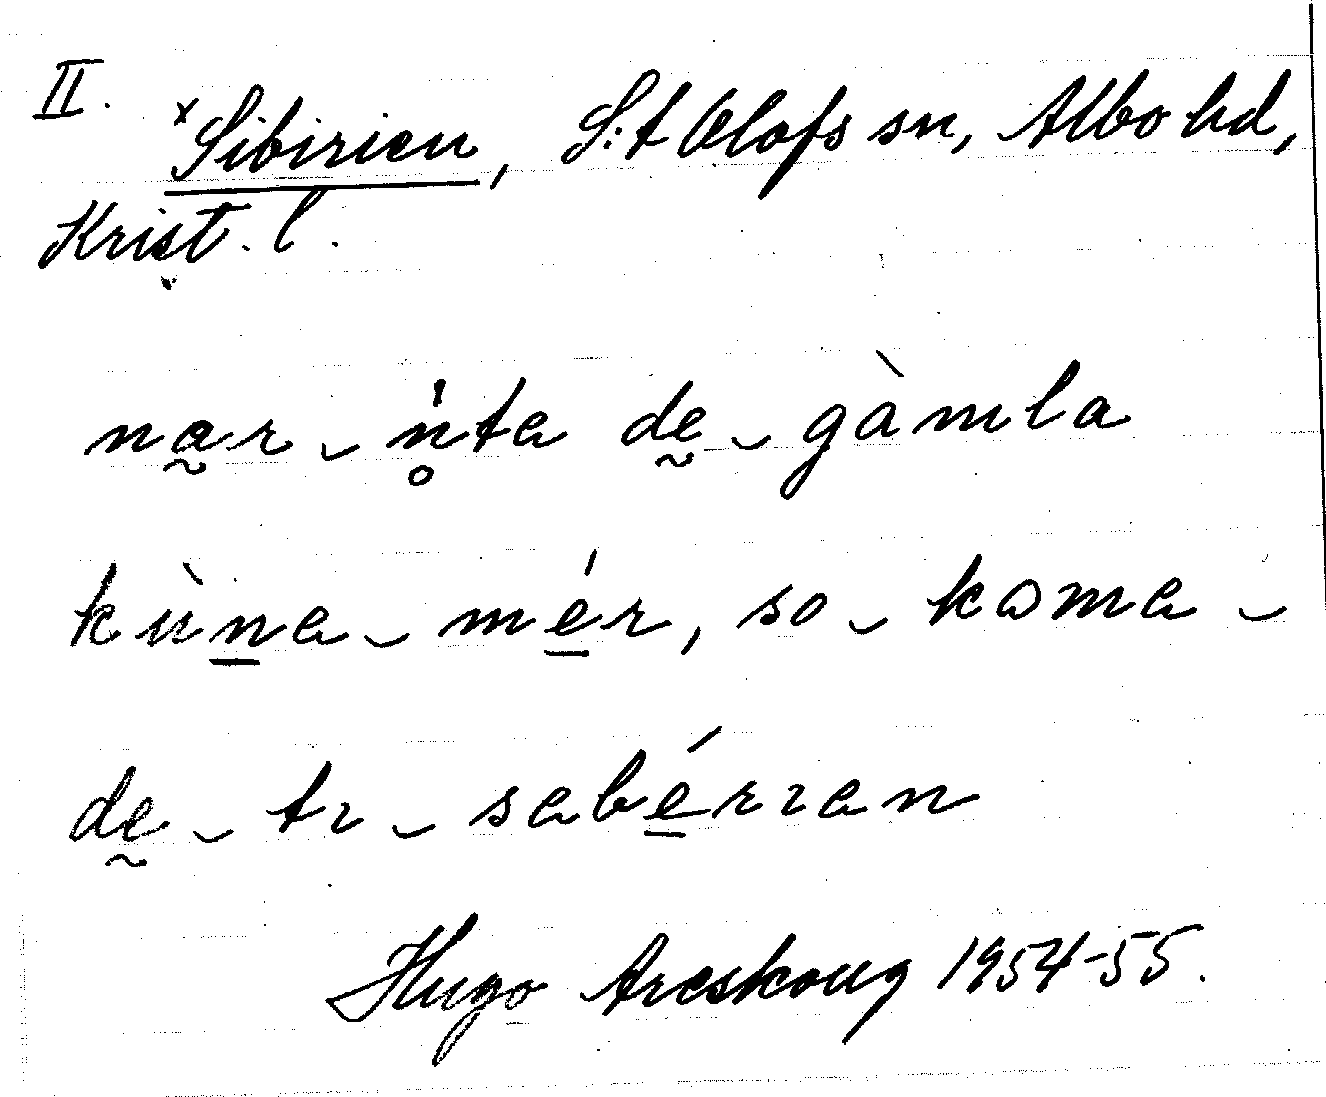 II. ×Sibirien, S:t Olofs sn, Albo hd,
Krist. l.
na̰r ‿ n̥̍ta dḛ ‿ gàmla
kùṉa ‿ mé̱r, so ‿ koma ‿
dḛ ‿ tɪ ‿ sebé̱rɪan
Hugo Areskoug 1954-55.